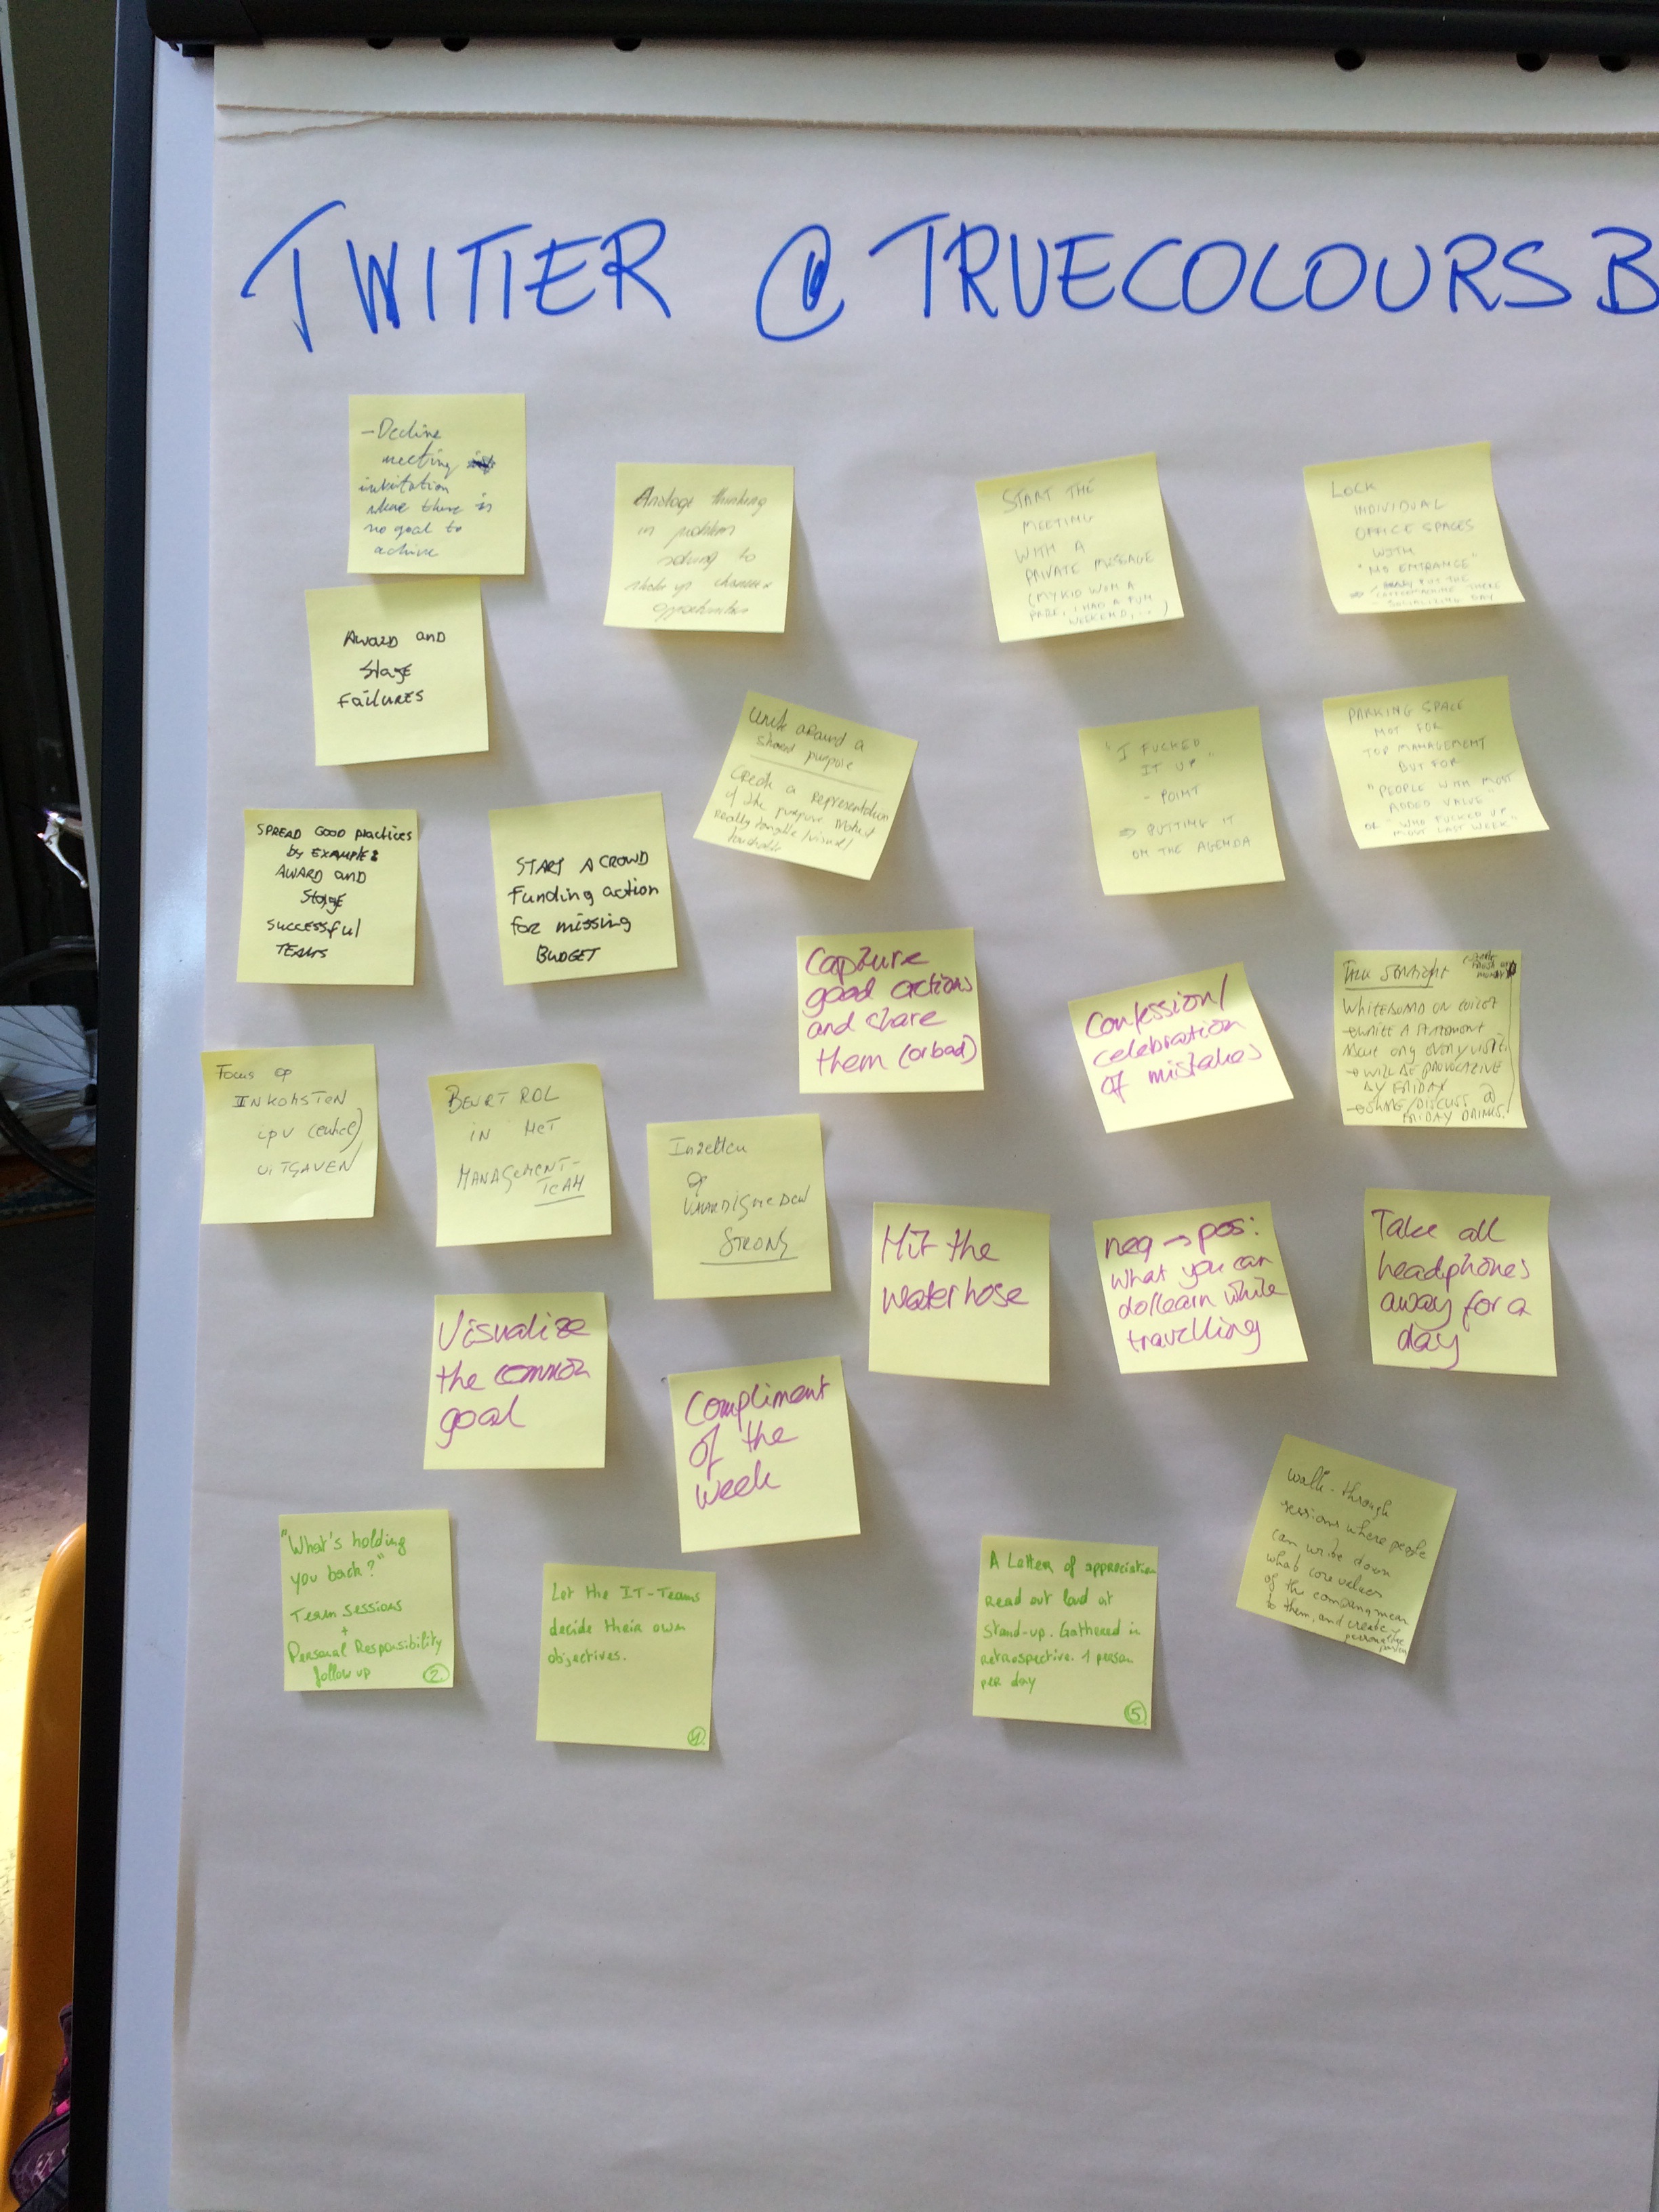 TWITTER @TRUECOLOURSB
- Decline
meeting
invitation
where there is
no goal to
achieve
Analoge thinking
in problem
solving to
opportunities
START THE
MEETING
WITH A
PRIVATE MESSAGE
(MY KID WON A
I HAD A FUN
WEEKEND, ...)
LOCK
INDIVIDUAL
OFFICE SPACES
WITH
"NO ENTRANCE"
PUT THE
COFFEEMACHINE THERE
SOCIALIZING DAY
AWARD AND
Stage
FAILURES
Unite around a
shared purpose
Create a representation
of the purpose make it
really tangible/visual/
touchable
"I FUCKED
IT UP"
- POINT
⇒ PUTTING IT
ON THE AGENDA
PARKING SPACE
NOT FOR
TOP MANAGEMENT
BUT FOR
"PEOPLE WITH MOST
ADDED VALUE"
OR "WHO FUCKED UP
MOST LAST WEEK"
SPREAD GOOD practices
by EXAMPLE:
AWARD AND
Stage
successful
TEAMS
START A CROWD
Funding action
for missing
BUDGET
Capture
good actions
and share
them (or bad)
Confession/
celebration
of mistakes
WHITEBOARD ON TOILET
→ WRITE A STATEMENT
EVERY VISIT
→ WILL BE PROVOCATIVE
BY FRIDAY
→ SHARE/DISCUSS @
FRIDAY DRINKS.
Focus op
INKOMSTEN
ipv (enkel)
UITGAVEN
BEURTROL
IN HET
MANAGEMENT-
TEAM
Inzetten
op
STRONG
Hit the
waterhose
neg → pos:
what you can
do/learn while
travelling
Take all
headphones
away for a
day
Visualize
the common
goal
Compliment
of the
week
"What's holding
you back?"
Team sessions
+
Personal Responsibility
follow up
2
Let the IT-Teams
decide their own
objectives.
4
A Letter of appreciation
Read out loud at
stand-up. Gathered in
retrospective. 1 person
per day
5
walk-through
sessions where people
can write down
what core values
of the company mean
to them, and create